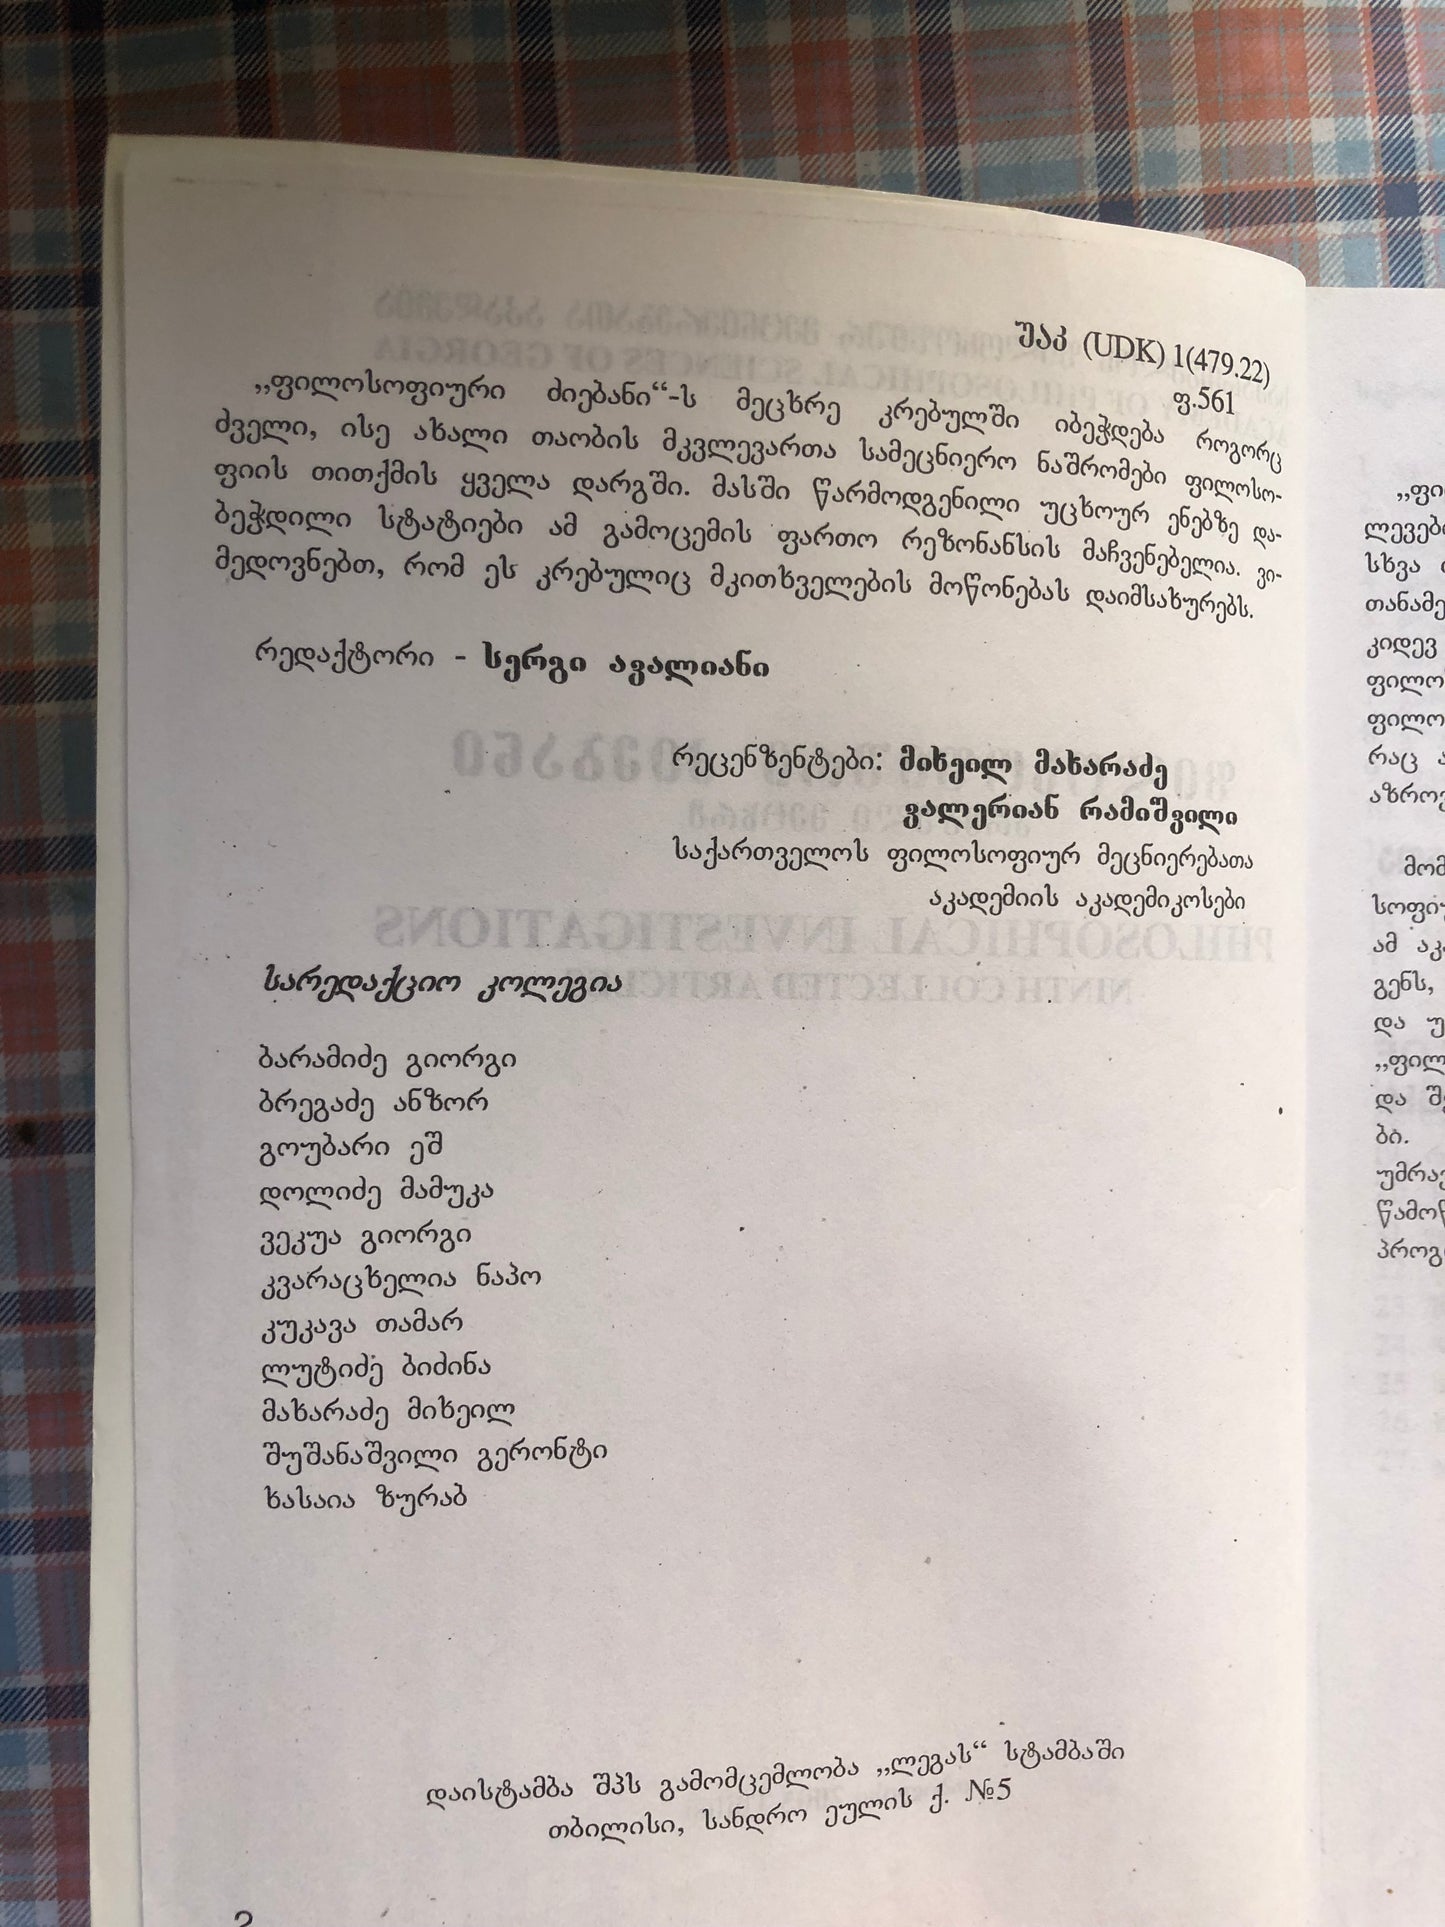 უაკ (UDK) 1(479.22)
ფ.561
„ფილოსოფიური ძიებანი“-ს მეცხრე კრებულში იბეჭდება როგორც
ძველი, ისე ახალი თაობის მკვლევართა სამეცნიერო ნაშრომები ფილოსო-
ფიის თითქმის ყველა დარგში. მასში წარმოდგენილი უცხოურ ენებზე და-
ბეჭდილი სტატიები ამ გამოცემის ფართო რეზონანსის მაჩვენებელია. ვი-
მედოვნებთ, რომ ეს კრებულიც მკითხველების მოწონებას დაიმსახურებს.
რედაქტორი - სერგი ავალიანი
რეცენზენტები: მიხეილ მახარაძე
ვალერიან რამიშვილი
საქართველოს ფილოსოფიურ მეცნიერებათა
აკადემიის აკადემიკოსები
სარედაქციო კოლეგია
ბარამიძე გიორგი
ბრეგაძე ანზორ
გოუბარი ეშ
დოლიძე მამუკა
ვეკუა გიორგი
კვარაცხელია ნაპო
კუკავა თამარ
ლუტიძე ბიძინა
მახარაძე მიხეილ
შუშანაშვილი გერონტი
ხასაია ზურაბ
დაისტამბა შპს გამომცემლობა „ლეგას“ სტამბაში
თბილისი, სანდრო ეულის ქ. №5
„ფი
ლევებ
სხვა
თანამე
კიდევ
ფილო
ფილო
რაც ა
აზრო
მომ
სოფიუ
ამ აკ
გენს,
და უ
„ფილ
და შ
ბი.
უმრა
წამო
პროგ